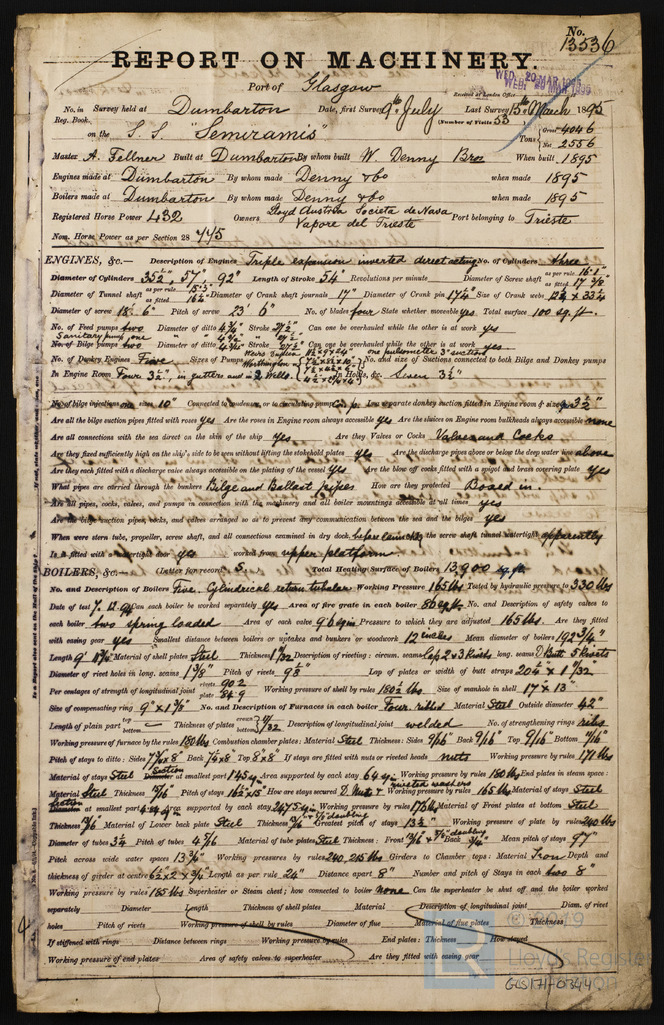 No. 13536
REPORT ON MACHINERY.
Port of Glasgow
Received at London Office
WED. 20 MAR 1895
No. in Survey held at Dumbarton Date, first Survey 9th July Last Survey 15th March 1895
Reg. Book. (Number of Visits 53
on the S. S. "Semiramis" Tons { Gross 4046
Net 2556
Master A. Fellner Built at Dumbarton By whom built W. Denny Bros When built 1895
Engines made at Dumbarton By whom made Denny & Co when made 1895
Boilers made at Dumbarton By whom made Denny & Co when made 1895
Registered Horse Power 432 Owners Lloyd Austria Societa de Nava Vapore del Trieste Port belonging to Trieste
Nom. Horse Power as per Section 28 445
ENGINES, &c.— Description of Engines Triple expansion inverted direct acting No. of Cylinders three
Diameter of Cylinders 35½", 57", 92" Length of Stroke 54" Revolutions per minute Diameter of Screw shaft as per rule 16.1" as fitted 17
Diameter of Tunnel shaft as per rule as fitted 16½" Diameter of Crank shaft journals 17" Diameter of Crank pin 17¼" Size of Crank webs
Diameter of screw 18' 6" Pitch of screw 23' 6" No. of blades four State whether moveable yes Total surface 100 sq. ft.
No. of Feed pumps two Diameter of ditto 4¾" Stroke 27½" Can one be overhauled while the other is at work yes
Sanitary pump one
No. of Bilge pumps two Diameter of ditto Stroke 27½" Can one be overhauled while the other is at work yes
No. of Donkey Engines Five Sizes of Pumps Worthington one pulsometer 3" suction No. and size of Suctions connected to both Bilge and Donkey pumps
In Engine Room Four 3½", in gutters and in 2 Wells. In Holds, &c. Seven 3½"
No. of bilge injections one sizes 10" Connected to condenser, or to circulating pump C. p. Is a separate donkey suction fitted in Engine room & size yes 3½"
Are all the bilge suction pipes fitted with roses yes Are the roses in Engine room always accessible yes Are the sluices on Engine room bulkheads always accessible none
Are all connections with the sea direct on the skin of the ship yes Are they Valves or Cocks Valves and Cocks
Are they fixed sufficiently high on the ship's side to be seen without lifting the stokehold plates yes Are the discharge pipes above or below the deep water line above
Are they each fitted with a discharge valve always accessible on the plating of the vessel yes Are the blow off cocks fitted with a spigot and brass covering plate yes
What pipes are carried through the bunkers Bilge and Ballast pipes How are they protected Boxed in.
Are all pipes, cocks, valves, and pumps in connection with the machinery and all boiler mountings accessible at all times yes
Are the bilge suction pipes, cocks, and valves arranged so as to prevent any communication between the sea and the bilges yes
When were stern tube, propeller, screw shaft, and all connections examined in dry dock, before launch Is the screw shaft tunnel watertight apparently
Is it fitted with a watertight door yes worked from upper platform
BOILERS, &c.— (Letter for record S. Total Heating Surface of Boilers 13,900 sq. ft.
No. and Description of Boilers Five. Cylindrical return tubular Working Pressure 165 lbs Tested by hydraulic pressure to 330 lbs
Date of test Can each boiler be worked separately yes Area of fire grate in each boiler No. and Description of safety valves to
each boiler two spring loaded Area of each valve Pressure to which they are adjusted 165 lbs. Are they fitted
with easing gear yes Smallest distance between boilers or uptakes and bunkers or woodwork 12 inches Mean diameter of boilers 192¾"
Length Material of shell plates Steel Thickness Description of riveting: circum. seams Lap 2 & 3 Rivets long. seams D. Butt 5 Rivets
Diameter of rivet holes in long. seams 1⅜" Pitch of rivets 9⅛" Lap of plates or width of butt straps
Per centages of strength of longitudinal joint rivets 90.2 plate 84.9 Working pressure of shell by rules 180½ lbs Size of manhole in shell 17 x 13"
Size of compensating ring No. and Description of Furnaces in each boiler Four ribbed Material Steel Outside diameter 42"
Length of plain part top bottom Thickness of plates crown bottom Description of longitudinal joint welded No. of strengthening rings ribs
Working pressure of furnace by the rules 180 lbs Combustion chamber plates: Material Steel Thickness: Sides 9/16" Back 9/16" Top 9/16" Bottom
Pitch of stays to ditto: Sides Back Top 8 x 8" If stays are fitted with nuts or riveted heads nuts Working pressure by rules 171 lbs
Material of stays Steel Section at smallest part Area supported by each stay Working pressure by rules 180 lbs End plates in steam space:
Material Steel Thickness Pitch of stays How are stays secured D. Nuts & riveted washers Working pressure by rules 165 lbs Material of stays Steel
Section at smallest part Area supported by each stay Working pressure by rules 176 lbs Material of Front plates at bottom Steel
Thickness Material of Lower back plate Steel Thickness Greatest pitch of stays 13½" Working pressure of plate by rules 240 lbs
Diameter of tubes 3¼ Pitch of tubes Material of tube plates Steel Thickness: Front Back ¾" Mean pitch of stays
Pitch across wide water spaces 13¾" Working pressures by rules 240, 215 lbs Girders to Chamber tops: Material Iron Depth and
thickness of girder at centre Length as per rule 24" Distance apart 8" Number and pitch of Stays in each two 8"
Working pressure by rules 185 lbs Superheater or Steam chest; how connected to boiler none Can the superheater be shut off and the boiler worked
separately Diameter Length Thickness of shell plates Material Description of longitudinal joint Diam. of rivet
holes Pitch of rivets Working pressure of shell by rules Diameter of flue Material of flue plates Thickness
If stiffened with rings Distance between rings Working pressure by rules End plates: Thickness How stayed
Working pressure of end plates Area of safety valves to superheater Are they fitted with easing gear
© 2019
Lloyd's Register
GLS/171-0344